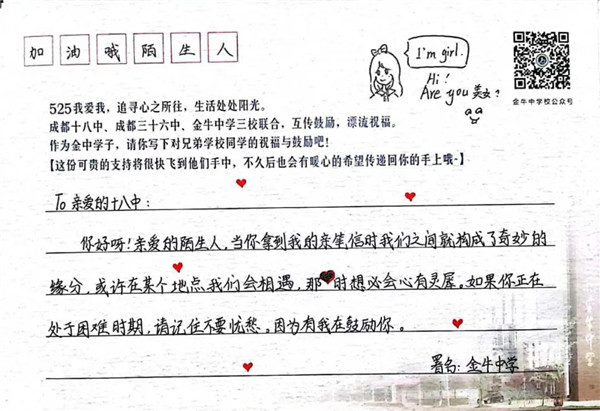 加油哦陌生人
I'm girl.
Hi!
Are you 美女?
金牛中学校公众号
525我爱我,追寻心之所往,生活处处阳光。
成都十八中、成都三十六中、金牛中学三校联合,互传鼓励,漂流祝福。
作为金中学子,请你写下对兄弟学校同学的祝福与鼓励吧!
【这份可贵的支持将很快飞到他们手中,不久后也会有暖心的希望传递回你的手上哦~】
To 亲爱的十八中:
你好呀!亲爱的陌生人,当你拿到我的亲笔信时我们之间就构成了奇妙的
缘分,或许在某个地点我们会相遇,那时想必会心有灵犀。如果你正在
处于困难时期,请记住不要忧愁。因为有我在鼓励你。
署名:金牛中学